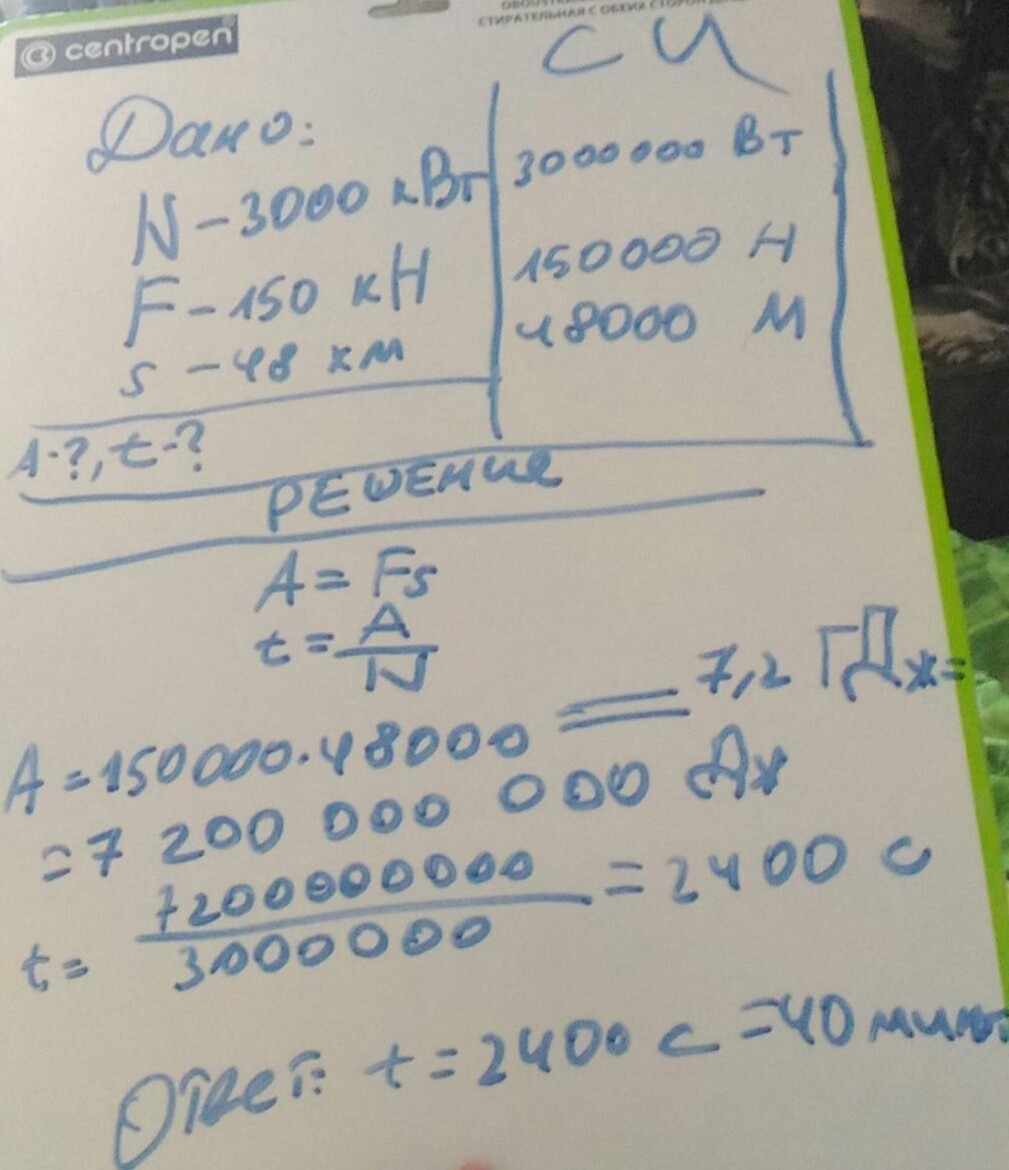 centropen
СТИРАТЕЛЬНАЯ С ОБЕИХ СТОРОН
СИ
Дано:
N - 3000 кВт 3000000 Вт
F - 150 кН 150000 Н
s - 48 км 48000 м
A-?, t-?
РЕШЕНИЕ
A = Fs
t = A/N
A = 150000·48000 = 7,2 ГДж =
= 7 200 000 000 Дж
t = 7200000000/3000000 = 2400 с
Ответ: t = 2400 с = 40 минут